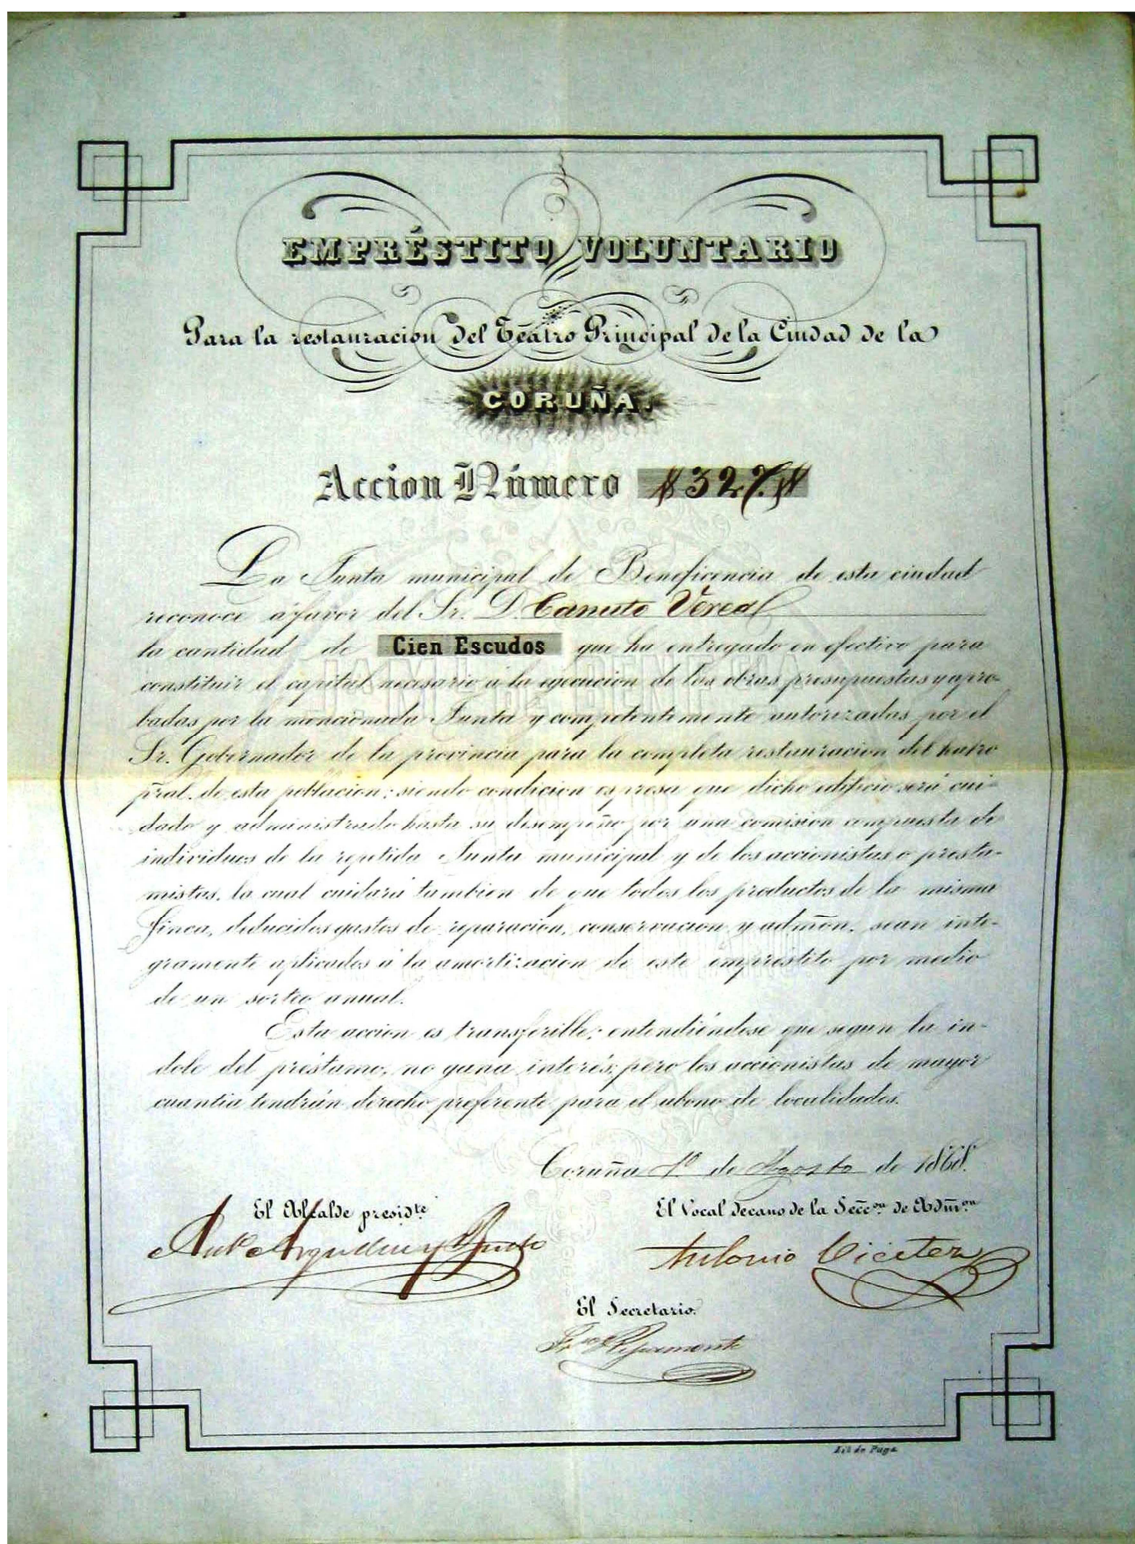 EMPRÉSTITO VOLUNTARIO
Para la restauracion del Teatro Principal de la Ciudad de la
CORUÑA.
Accion Número 327.
La Junta municipal de Beneficencia de esta ciudad
reconoce á favor del Sr. D. Canuto Vereal
la cantidad de Cien Escudos que ha entregado en efectivo para
constituir el capital necesario á la egecucion de las obras presupuestas y apro-
badas por la mencionada Junta y competentemente autorizadas por el
Sr. Gobernador de la provincia para la completa restauracion del teatro
pral. de esta poblacion: siendo condicion espresa que dicho edificio será cui-
dado y administrado hasta su desempeño por una comision compuesta de
individuos de la repetida Junta municipal y de los accionistas o presta-
mistas, la cual cuidará tambien de que todos los productos de la misma
finca, deducidos gastos de reparacion, conservacion y admon. sean inte-
gramente aplicados á la amortizacion de este empréstito por medio
de un sorteo anual.
Esta accion es transferible: entendiéndose que segun la ín-
dole del préstamo, no gana interés; pero los accionistas de mayor
cuantia tendrán derecho preferente para el abono de localidades.
Coruña 1º de Agosto de 1868.
El Alcalde presidte
El Vocal decano de la Seccon de Admon
Antonio Vicetez
El Secretario.
Lit de Puga